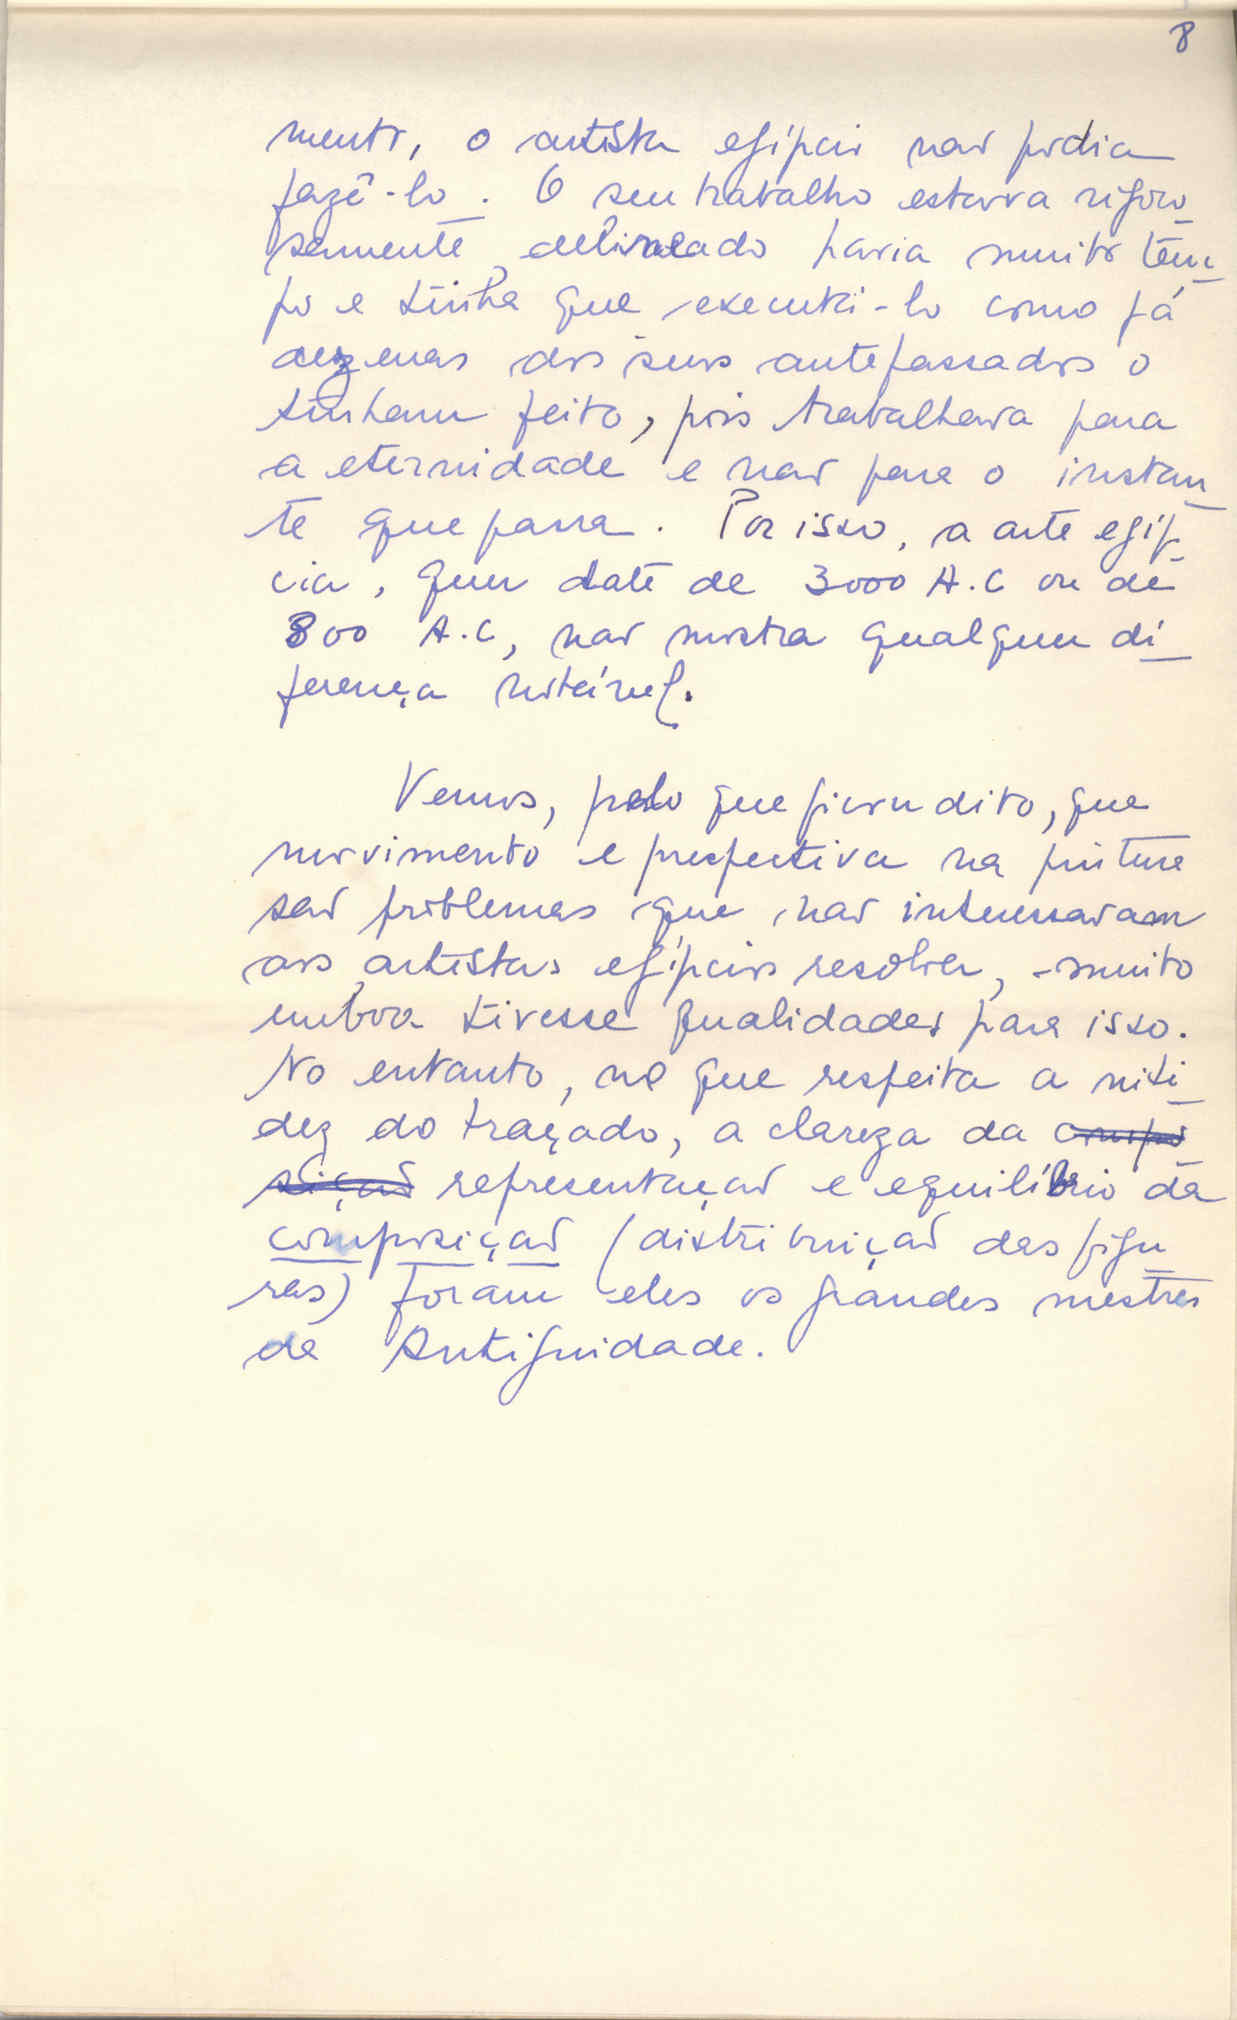 8
mento, o artista egípcio não podia
fazê-lo. O seu trabalho estava rigoro_
samente delineado havia muito têm_
po e tinha que executá-lo como já
dezenas dos seus antepassados o
tinham feito, pois trabalhava para
a eternidade e não para o instan_
te que passa. Por isso, a arte egíp_
cia, quer date de 3000 A.C ou de
800 A.C, não mostra qualquer di_
ferença notável.
Vemos, pelo que ficou dito, que
movimento e prespectiva na pintura
são problemas que não interessaram
aos artistas egípcios resolver, - muito
embora tivesse qualidades para isso.
No entanto, no que respeita a niti_
dez do traçado, a clareza da compo
sição representação e equilíbrio da
composição (distribuição das figu_
ras) foram eles os grandes mestres
da Antiguidade.